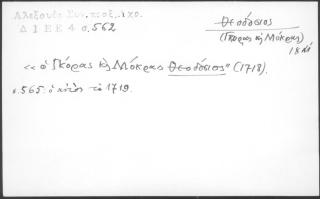 Αλεξούδη Συν. επισκ. ιχο.
ΔΙΕΕ 4 σ.562
Θεοδόσιος
(Γκόρας κ Μόκρας)
18 αι
«ο Γκόρας κ Μόκρας Θεοδόσιος" (1718).
σ.565. ο αυτός το 1719.